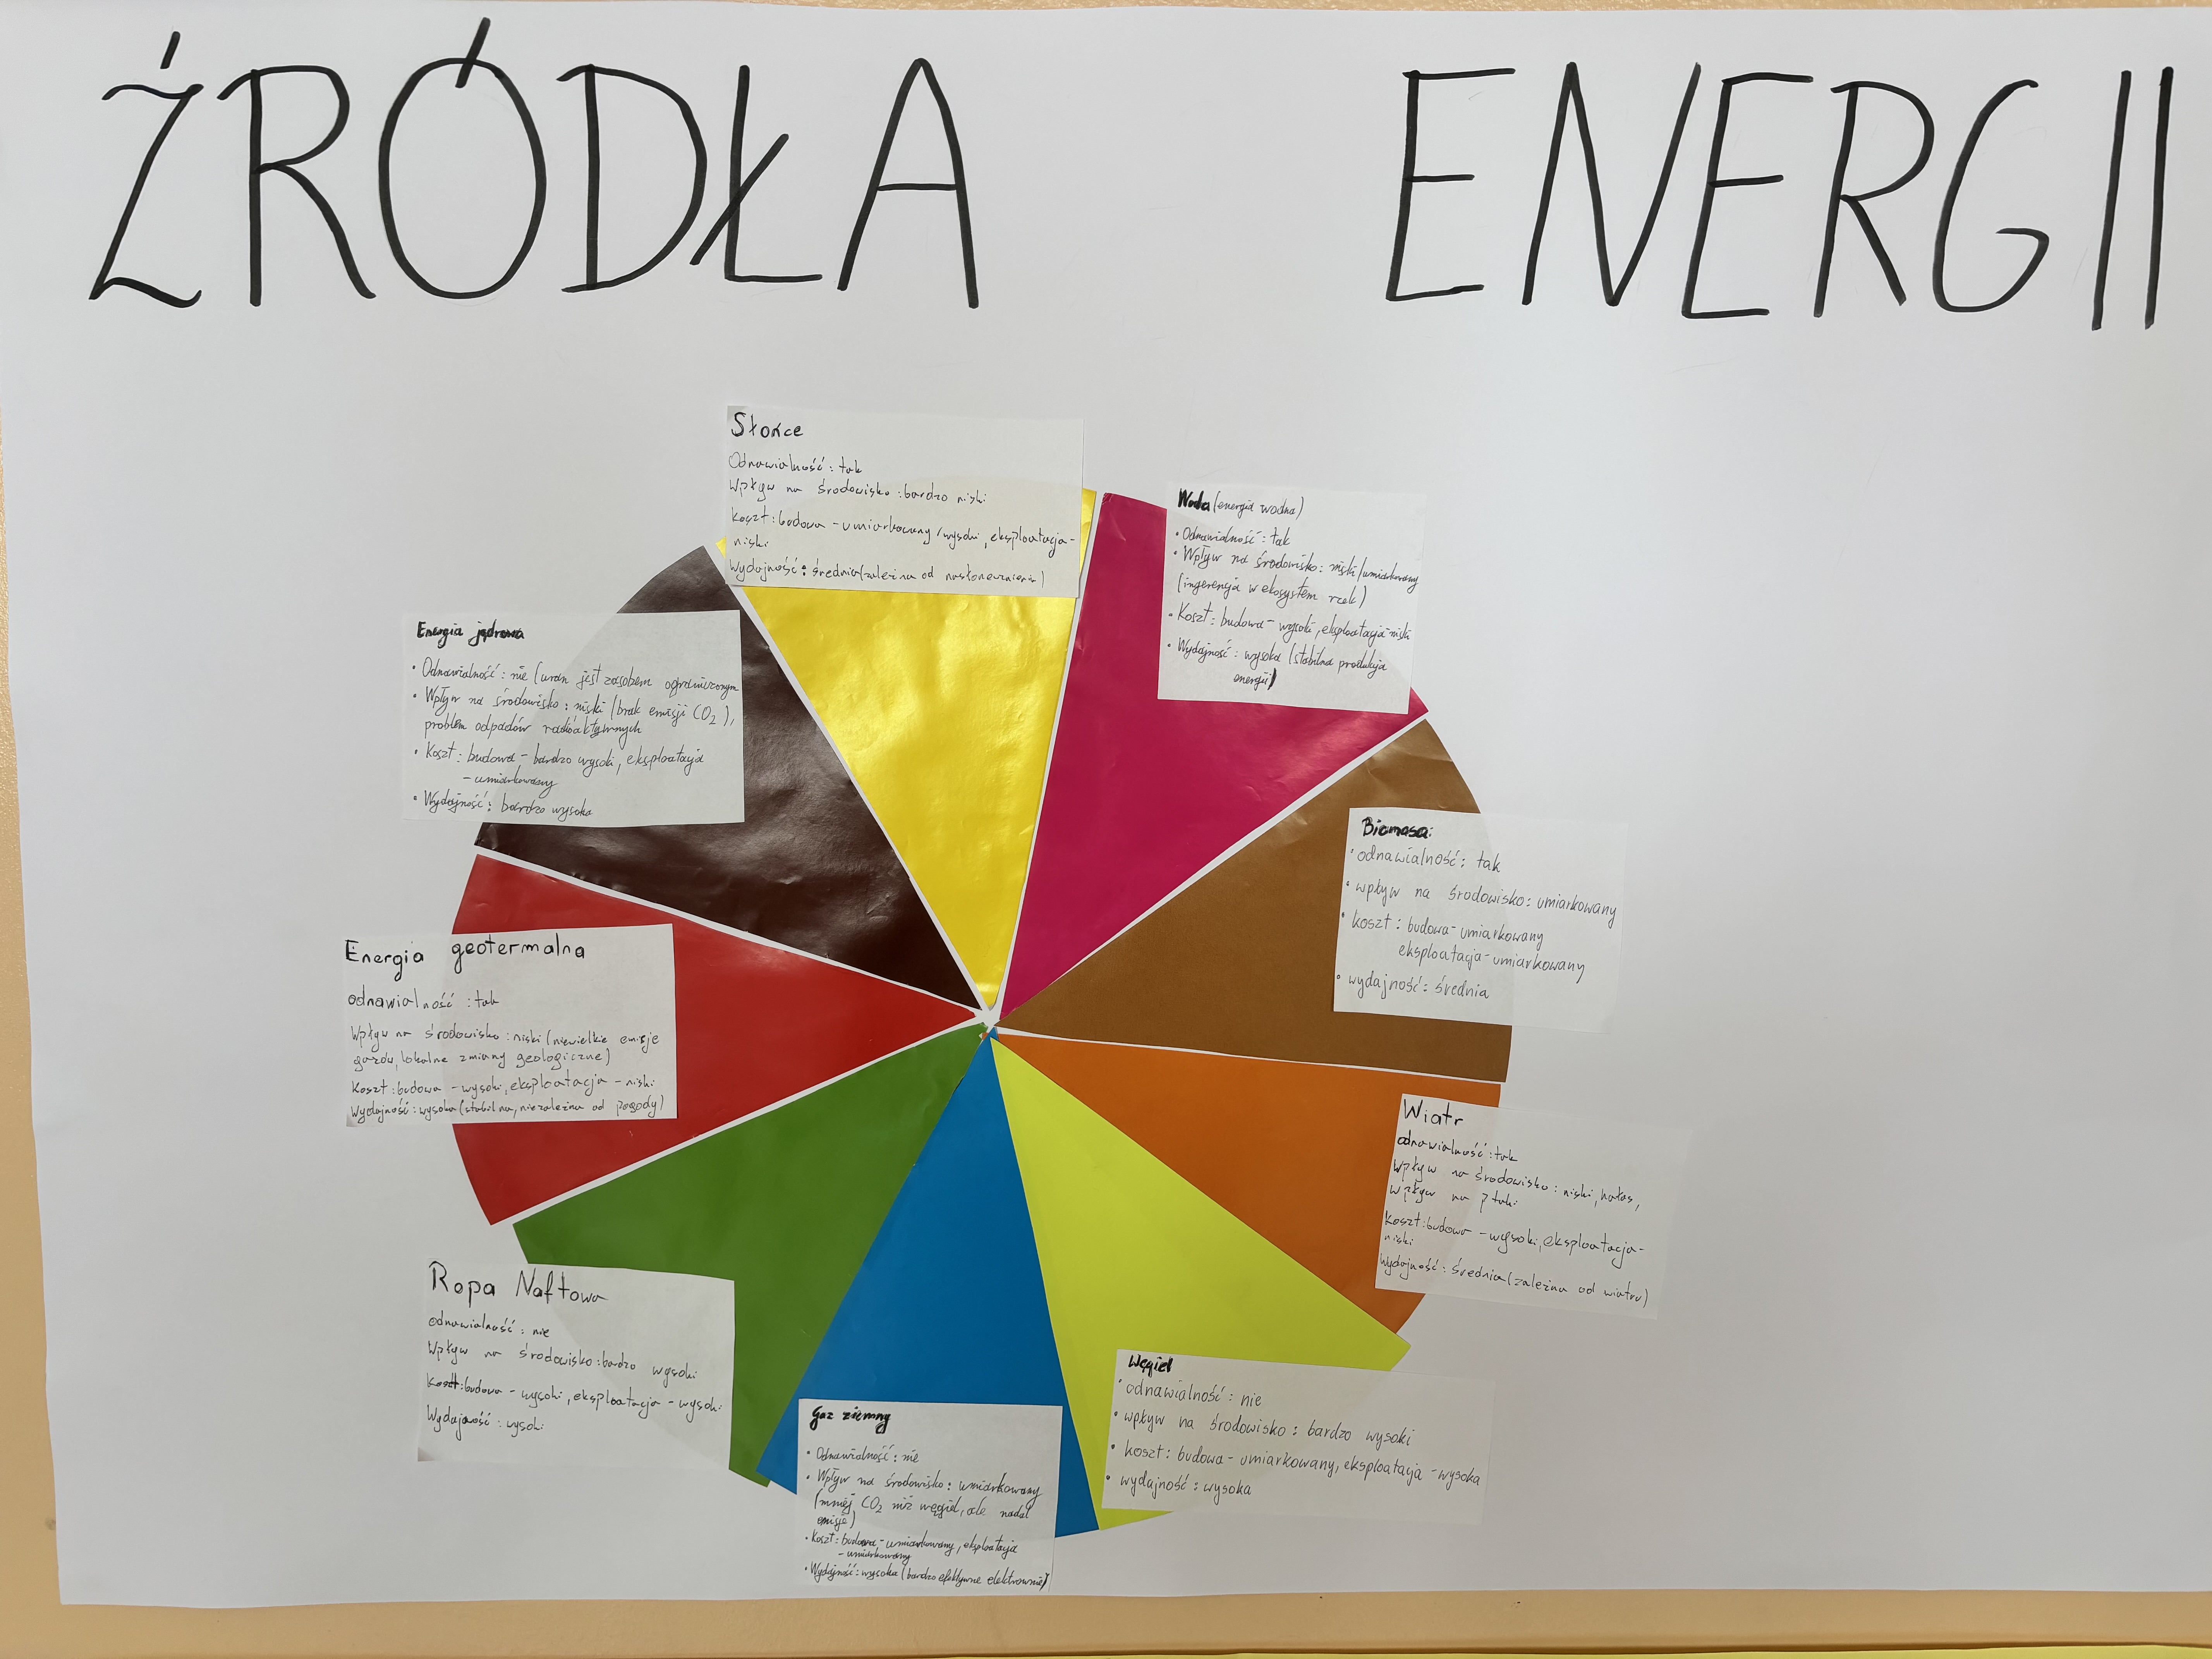 ŹRÓDŁA ENERGII
Słońce
Odnawialność: tak
Wpływ na środowisko: bardzo niski
Koszt: budowa - umiarkowany/wysoki, eksploatacja-
niski
Wydajność: średnia (zależna od nasłonecznienia)
Woda (energia wodna)
• Odnawialność: tak
• Wpływ na środowisko: niski/umiarkowany
(ingerencja w ekosystem rzek)
• Koszt: budowa - wysoki, eksploatacja-niski
• Wydajność: wysoka (stabilna produkcja
energii)
Biomasa:
• odnawialność: tak
• wpływ na środowisko: umiarkowany
• koszt: budowa-umiarkowany
eksploatacja-umiarkowany
• wydajność: średnia
Wiatr
odnawialność: tak
Wpływ na środowisko: niski, hałas,
wpływ na ptaki
Koszt: budowa - wysoki, eksploatacja-
niski
Wydajność: średnia (zależna od wiatru)
Węgiel
• odnawialność: nie
• wpływ na środowisko: bardzo wysoki
• koszt: budowa - umiarkowany, eksploatacja - wysoka
• wydajność: wysoka
Gaz ziemny
• Odnawialność: nie
• Wpływ na środowisko: umiarkowany
(mniej CO2 niż węgiel, ale nadal
emisje)
• Koszt: budowa - umiarkowany, eksploatacja
- umiarkowany
• Wydajność: wysoka (bardzo efektywne elektrownie)
Ropa Naftowa
odnawialność: nie
Wpływ na środowisko: bardzo wysoki
Koszt: budowa - wysoki, eksploatacja - wysoki
Wydajność: wysoki
Energia geotermalna
odnawialność: tak
Wpływ na środowisko: niski (niewielkie emisje
gazów, lokalne zmiany geologiczne)
Koszt: budowa - wysoki, eksploatacja - niski
Wydajność: wysoka (stabilna, niezależna od pogody)
Energia jądrowa
• Odnawialność: nie (uran jest zasobem ograniczonym
• Wpływ na środowisko: niski (brak emisji CO2),
problem odpadów radioaktywnych
• Koszt: budowa - bardzo wysoki, eksploatacja
- umiarkowany
• Wydajność: bardzo wysoka